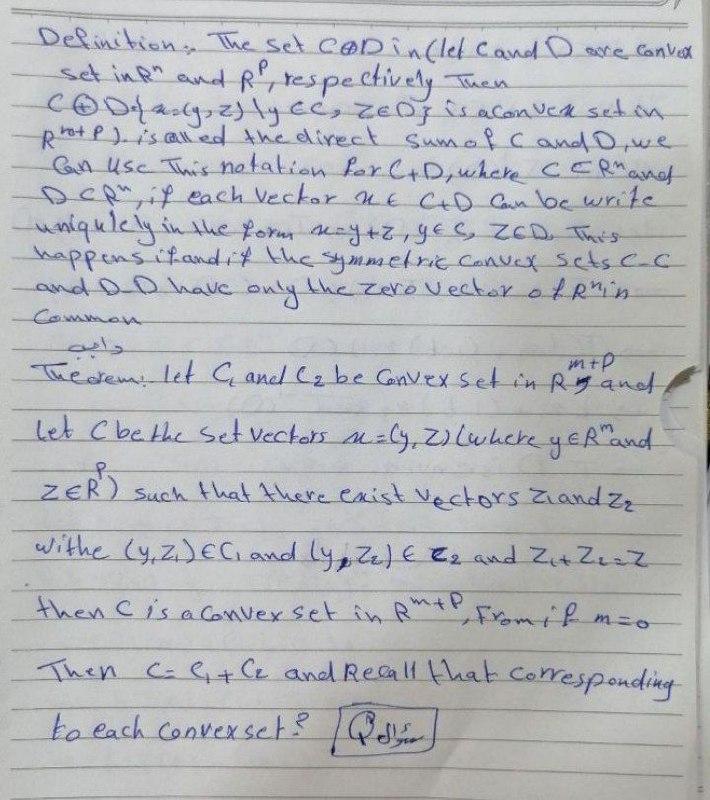 Definition:- The set C⊕D in (let C and D are convex
set in Rⁿ and Rᴾ, respectively Then
C⊕D={x=(y,z) | y∈C, z∈D} is a convex set in
Rᵐ⁺ᴾ). is called the direct sum of C and D, we
Can use This notation for C+D, where C⊂Rⁿ and
D⊂Rⁿ, if each vector x∈ C+D Can be write
uniqulely in the form x=y+z, y∈C, z∈D. This
happens if and if the symmetric convex sets C-C
and D-D have only the zero vector of Rⁿ in
Common
واجب
Theorem: let C₁ and C₂ be Convex set in Rᵐ⁺ᴾ and
Let C be the set vectors x=(y,z) (where y∈Rᵐ and
z∈Rᴾ) such that there exist vectors z₁ and z₂
withe (y,z₁)∈C₁ and (y,z₂)∈C₂ and z₁+z₂=z
then C is a convex set in Rᵐ⁺ᴾ, From if m=0
Then C=C₁+C₂ and Recall that corresponding
to each convex set?